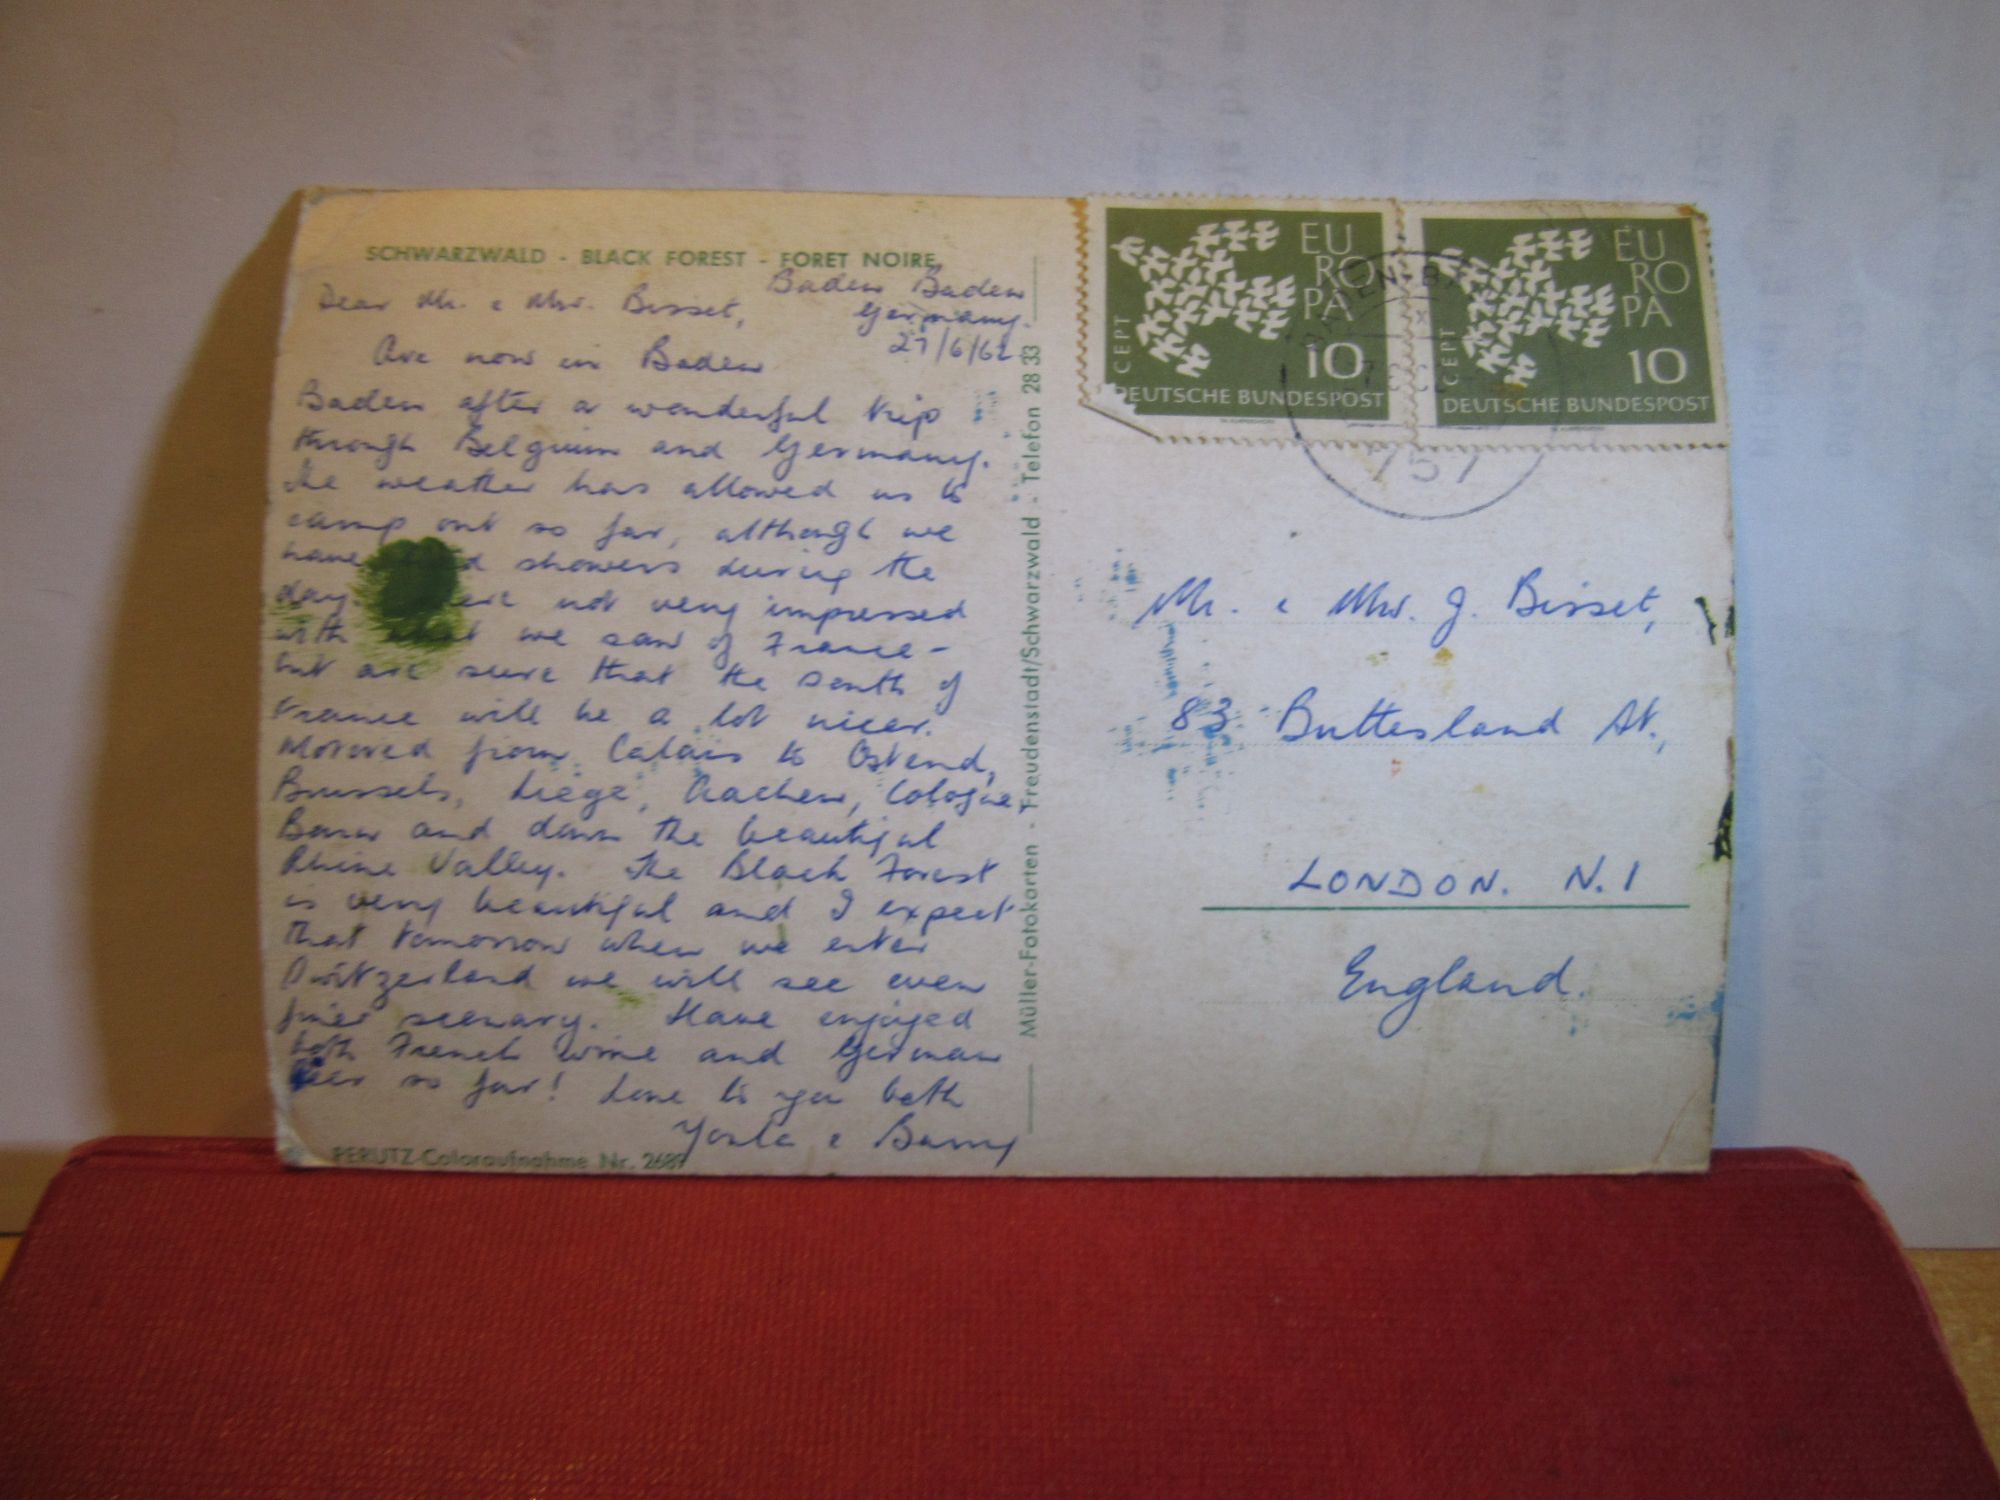 SCHWARZWALD - BLACK FOREST - FORET NOIRE
Baden Baden
Germany.
27/6/62
Dear Mr. & Mrs. Bisset,
Are now in Baden
Baden after a wonderful trip
through Belgium and Germany.
The weather has allowed us to
camp out so far, although we
have had showers during the
day. were not very impressed
with what we saw of France -
but are sure that the South of
France will be a lot nicer.
Motored from Calais to Ostend,
Brussels, Liege, Aachen, Cologne,
Bonn and down the beautiful
Rhine Valley. The Black Forest
is very beautiful and I expect
that tomorrow when we enter
Switzerland we will see even
finer scenary. Have enjoyed
both French wine and German
beer so far! Love to you both
& Barry
PERUTZ-Coloraufnahme Nr. 2689
Müller-Fotokarten - Freudenstadt/Schwarzwald - Telefon 28 33
EU
RO
PA
CEPT
10
DEUTSCHE BUNDESPOST
EU
RO
PA
CEPT
10
DEUTSCHE BUNDESPOST
BADEN-BA
757
Mr. & Mrs. J. Bisset,
83 Buttesland St.,
LONDON. N.1
England.